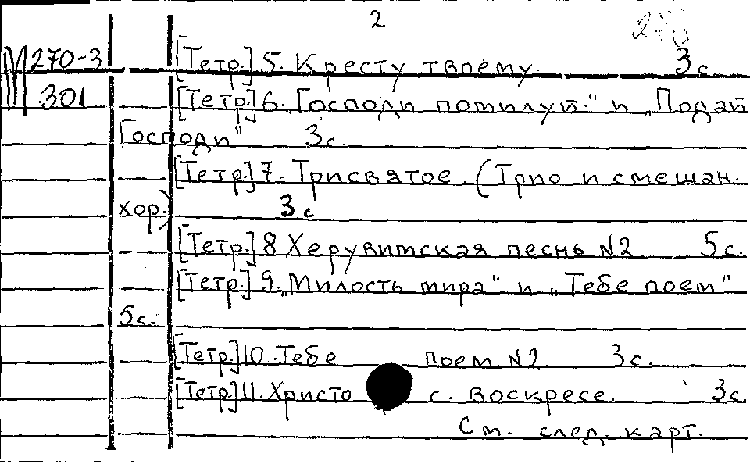 2
М 270-3 [Тетр.] 5. Кресту твоему 3с.
301 [Тетр.] 6. Господи помилуй" и „Подай
Господи" 3с.
[Тетр.] 7. Трисвятое. (Трио и смешан.
хор.) 3с
[Тетр.] 8 Херувимская песнь N2 5с.
[Тетр.] 9. „Милость мира" и „Тебе поем"
5с.
[Тетр.] 10. Тебе поем N2 3с.
[Тетр.] 11. Христо с. воскресе. 3с
См. след. карт.